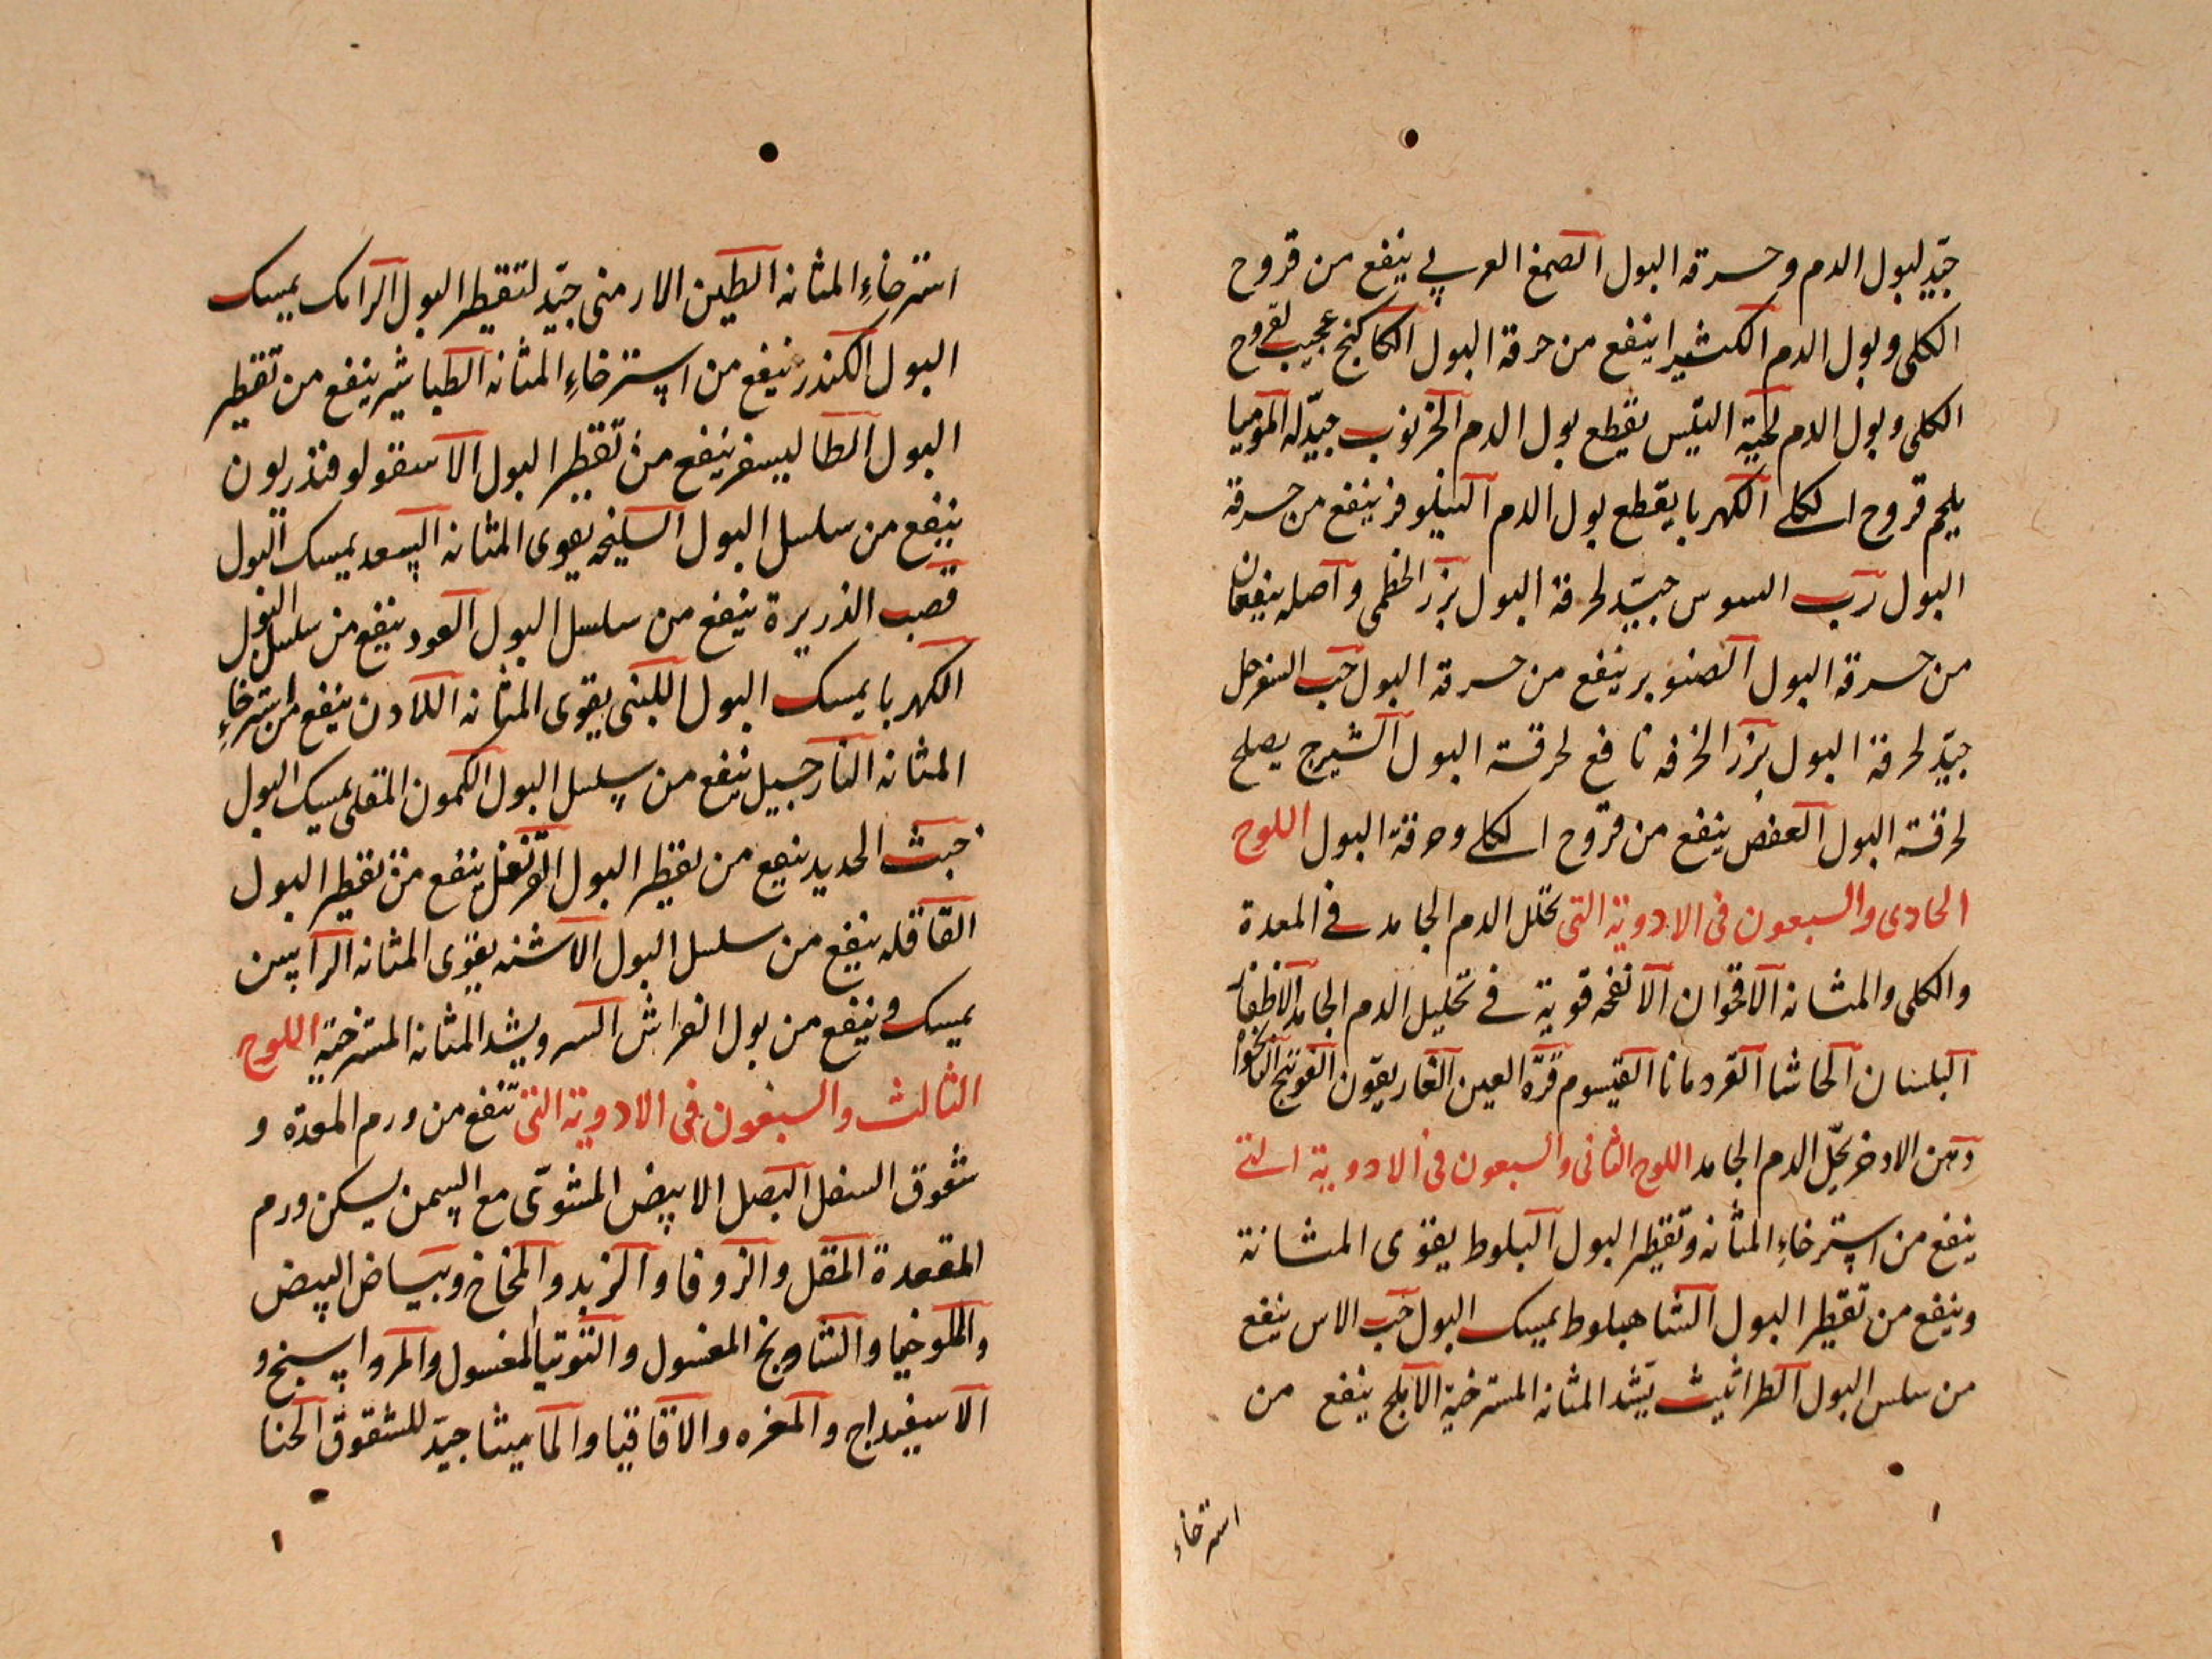 جيّد لبول الدم وحرقة البول الصمغ العربي ينفع من قروح
الكلى وبول الدم الكثيرا ينفع من حرقة البول الكاكنج عجيب لقروح
الكلى وبول الدم لحية التيس يقطع بول الدم الخرنوب جيّد له الموميا
يلحم قروح الكلى الكهربا يقطع بول الدم النيلوفر ينفع من حرقة
البول رب السوس جيّد لحرقة البول بزر الخطمى واصله ينفعان
من حرقة البول الصنوبر ينفع من حرقة البول حب السفرجل
جيّد لحرقة البول بزر الخرفه نافع لحرقة البول الشيرج يصلح
لحرقة البول العفص ينفع من قروح الكلى وحرقة البول اللوح
الحادى والسبعون فى الادوية التى تحلل الدم الجامد فى المعدة
والكلى والمثانه الاقحوان الانفحه قوية فى تحليل الدم الجامد
البلسان الحاشا القردمانا القيسوم قرّة العين الغاريقون الفوتنج
دهن الاذخر يحلّ الدم الجامد اللوح الثانى والسبعون فى الادوية التى
ينفع من استرخاءِ المثانه وتقطير البول البلوط يقوّى المثانة
وينفع من تقطير البول الشاهبلوط يمسك البول حب الاس ينفع
من سلس البول الطراثيث يشد المثانه المسترخية الابلج ينفع من
استرخاء
استرخاءِ المثانه الطين الارمنى جيّد لتقطير البول الرامك يمسك
البول الكندر ينفع من استرخاءِ المثانه الطباشير ينفع من تقطير
البول الطاليسفر ينفع من تقطير البول الاسقولوفندريون
ينفع من سلسل البول السليخه يقوى المثانه السعد يمسك البول
قصب الذريرة ينفع من سلسل البول العود ينفع من سلسل البول
الكهربا يمسك البول اللبنى يقوى المثانه اللادن ينفع من استرخاءِ
المثانه النارجيل ينفع من سلسل البول الكمون المقلى يمسك البول
خبث الحديد ينفع من تقطير البول القرنفل ينفع من تقطير البول
القاقله ينفع من سلسل البول الاشنه يقوّى المثانه الراسن
يمسك وينفع من بول الفراش السرو يشد المثانه المسترخية اللوح
الثالث والسبعون فى الادوية التى تنفع من ورم المعدة و
شقوق السفل البصل الابيض المشوىّ مع السمن يسكن ورم
المقعدة المقل والزوفا والزبد والمخاخ وبياض البيض
والملوخيا والشاذنج المغسول والتوتيا المغسول والمرو اسنج و
الاسفيداج والمغره والاقاقيا والماميثا جيّد للشقوق الحنا